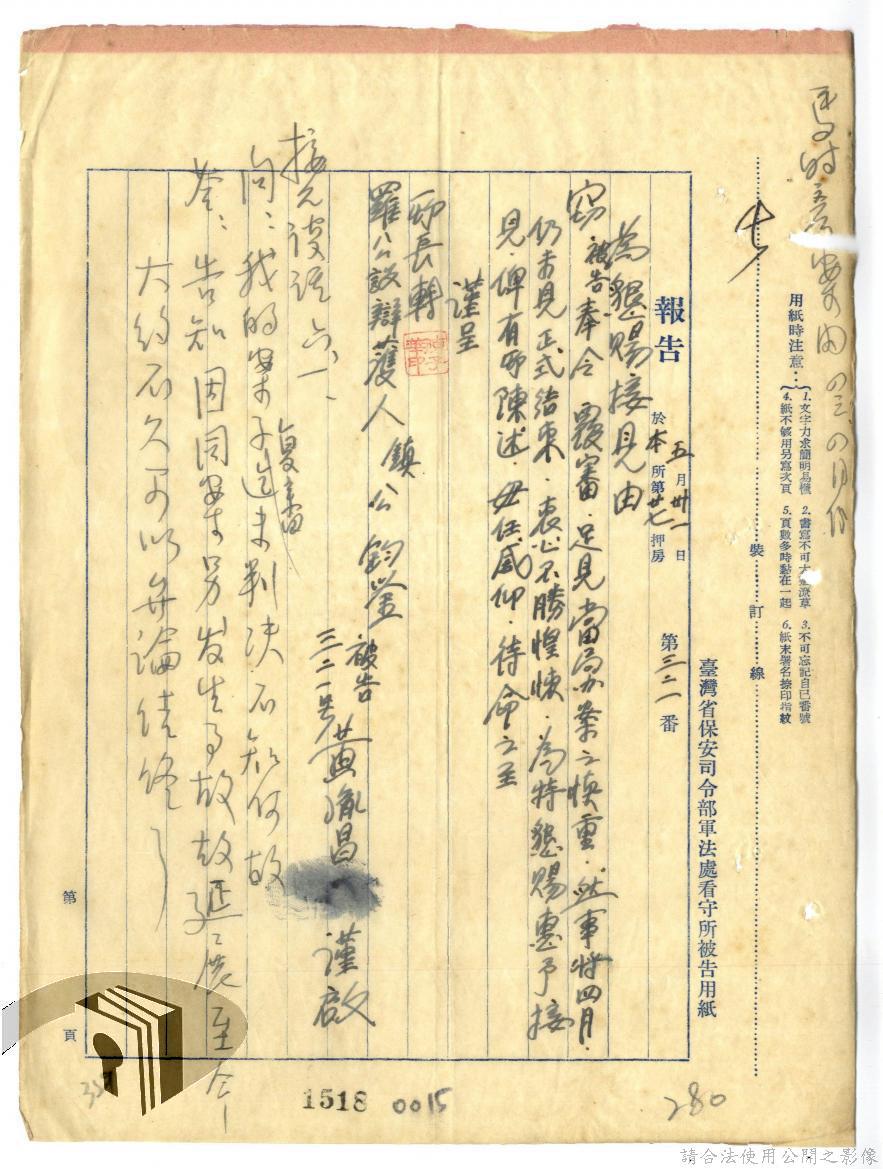 七
用紙時注意：
1.文字力求簡明易懂 2.書寫不可太潦草 3.不可忘記自己番號
4.紙不够用另寫次頁 5.頁數多時黏在一起 6.紙末署名捺印指紋
裝訂線
臺灣省保安司令部軍法處看守所被告用紙
報告 五月卅一日 於本所第廿七押房 第三二一番
為懇賜接見由
竊被告奉令覆審．足見當局案之慎重．然事將四月．
仍未見正式結束．衷心不勝惶悚．為特懇賜惠予接
見．俾有所陳述．毋任感仰．待命之至
謹呈
所長轉
羅公設辯護人 鎮公 鈞鑒
被告
三二一號 黃胤昌 謹啟
接見談話
問：我的案子迄未判決不知何故
復審
答：告知因同案另發生事故故延展至今
大約不久可以弁論終
第 頁
1518 0015
280
請合法使用公開之影像